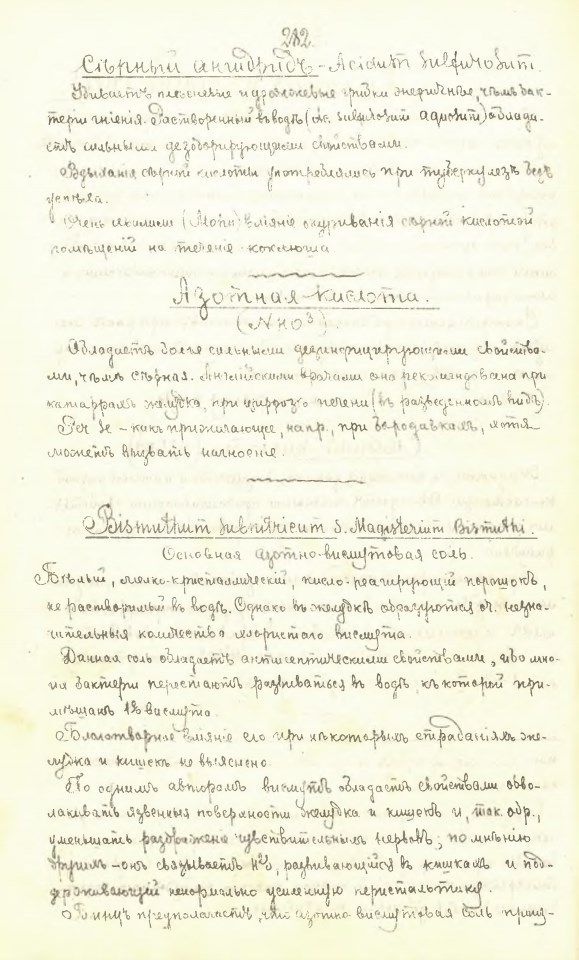 282.
Сѣрный ангидридъ - Acidum sulfurosum.
Убиваетъ плесневые и дрожжевые грибки энергичнѣе, чѣмъ бак-
теріи гніенія. Растворенный въ водѣ (Ac. sulfurosum aquosum) облада-
етъ сильными дезодорирующими свойствами.
Вдыханія сѣрной кислоты употреблялись при туберкулезѣ безъ
успѣха.
Очень хвалили (Mohn) вліяніе окуриванія сѣрной кислотой
помѣщеній на теченіе коклюша.
Азотная кислота.
(NHO³)
Обладаетъ болѣе сильными дезинфицирующими свойства-
ми, чѣмъ сѣрная. Англійскими врачами она рекомендована при
катаррахъ желудка, при циррозѣ печени (въ разведенномъ видѣ).
Per se - какъ прижигающее, напр., при бородавкахъ, хотя
можетъ вызвать нагноеніе.
Bismuthum subnitricum s. Magisterium Bismuthi.
Основная азотно-висмутовая соль.
Бѣлый, мелко-кристаллическій, кисло-реагирующій порошокъ,
не растворимый въ водѣ. Однако въ желудкѣ образуются оч. незна-
чительныя количества хлористаго висмута.
Данная соль обладаетъ антисептическими свойствами, ибо мно-
гія бактеріи перестаютъ развиваться въ водѣ, къ которой при-
мѣшанъ 1% висмута.
Благотворное вліяніе его при нѣкоторыхъ страданіяхъ же-
лудка и кишекъ не выяснено.
По однимъ авторамъ висмутъ обладаетъ свойствами обво-
лакивать язвенныя поверхности желудка и кишекъ и, так. обр.,
уменьшать раздраженіе чувствительныхъ нервовъ; по мнѣнію
другихъ - онъ связываетъ H²S, развивающійся въ кишкахъ и под-
держивающій ненормально усиленную перистальтику.
Бинцъ предполагаетъ, что азотно висмутовая соль произ-